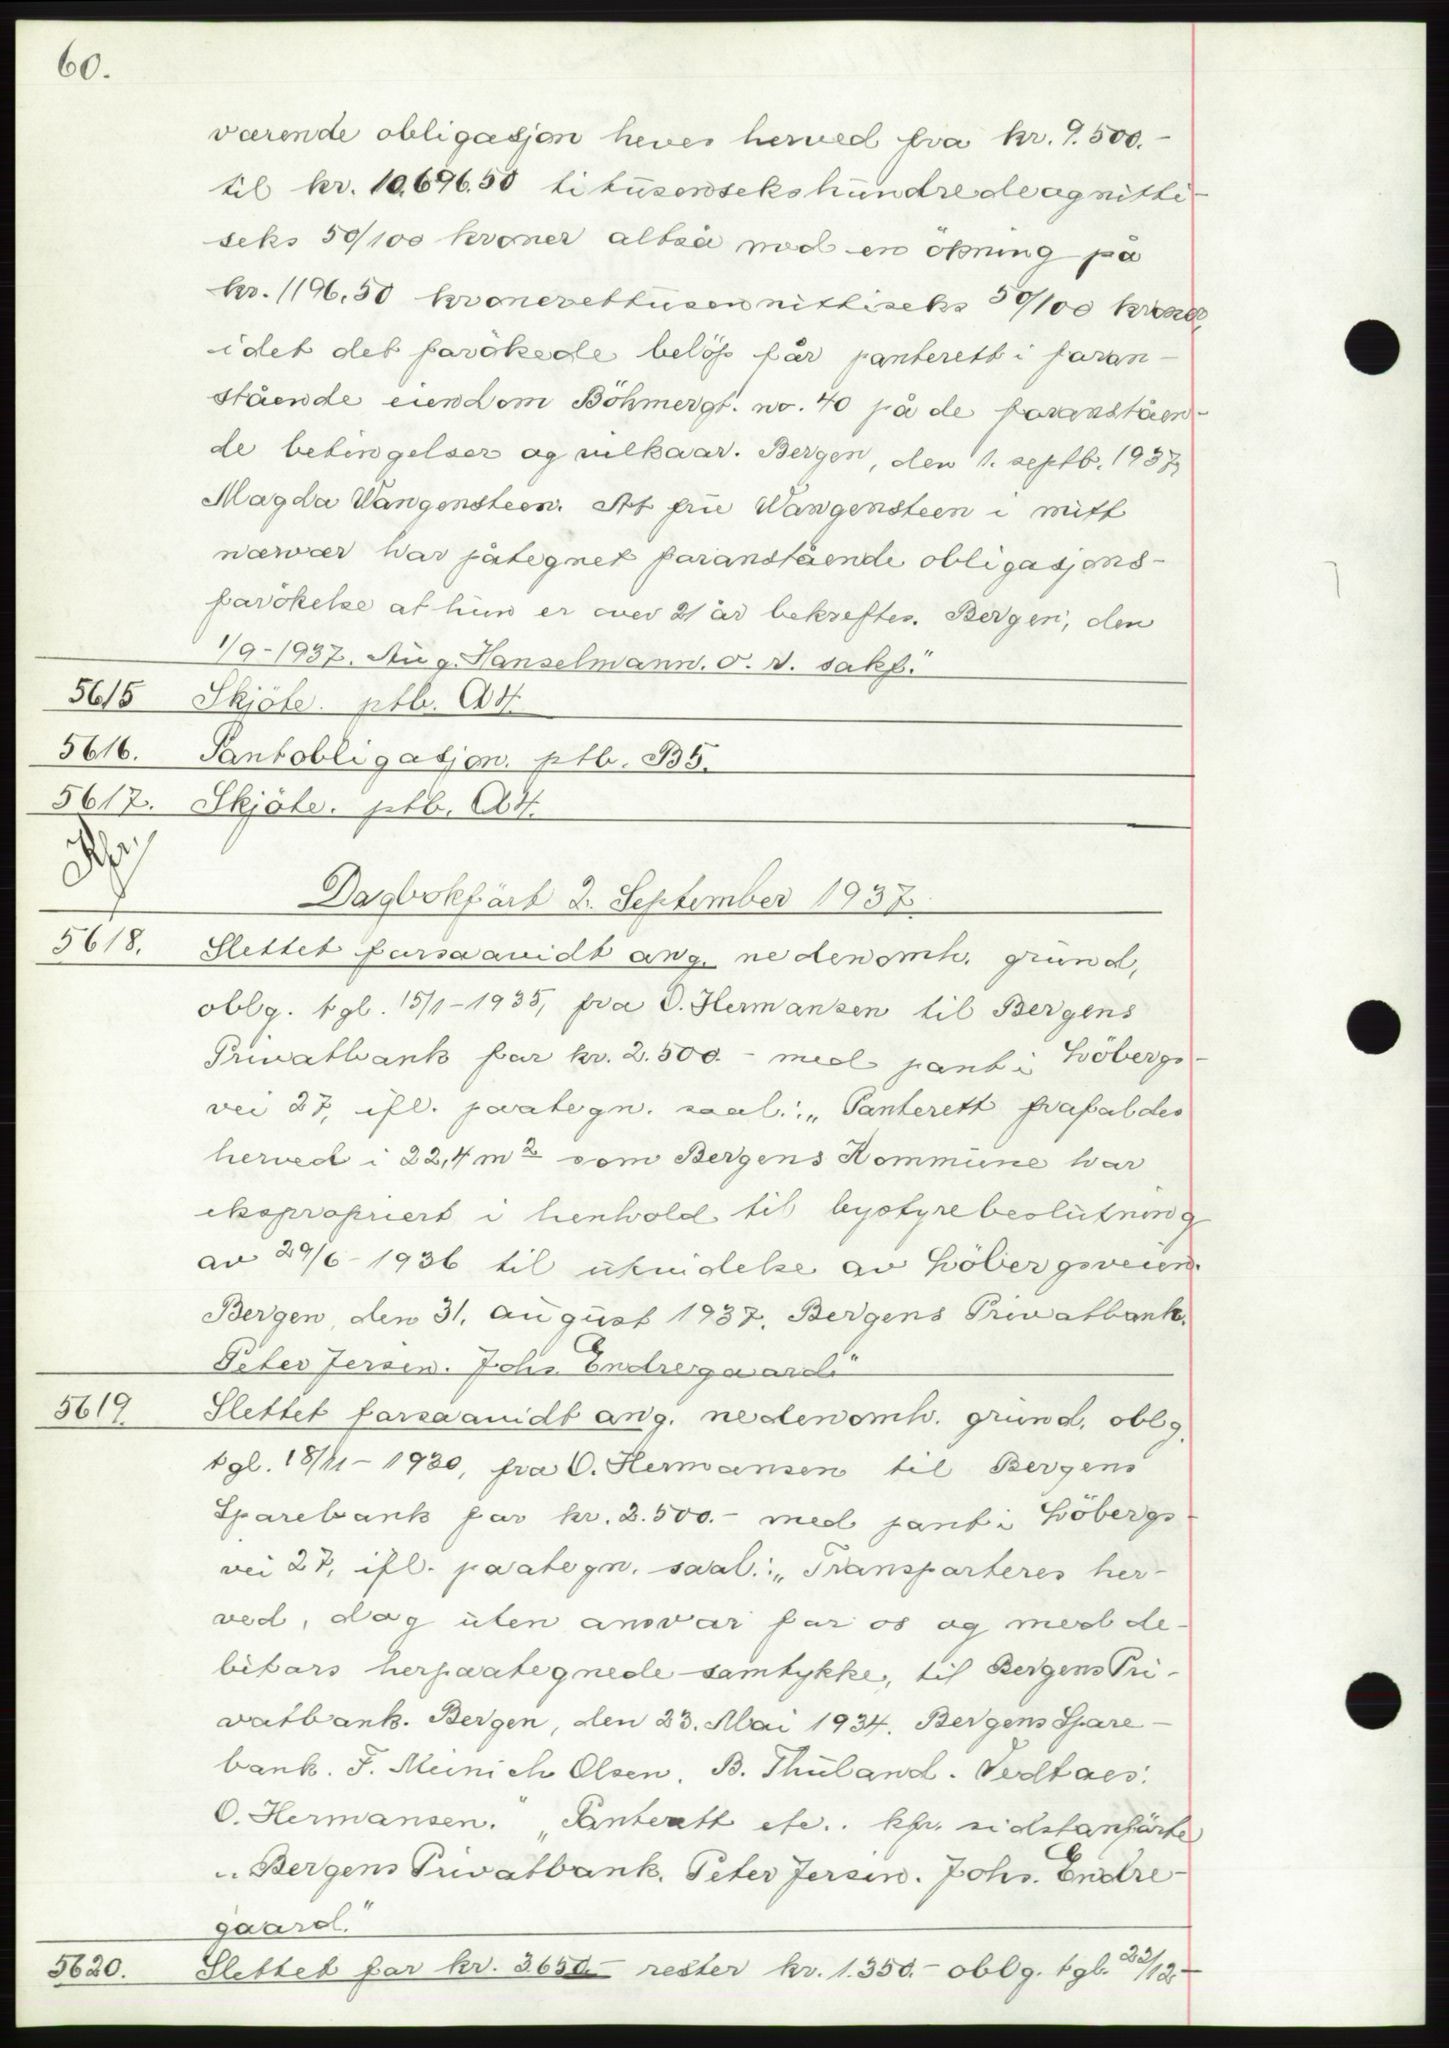 60.
værende obligasjon heves herved fra kr. 9.500.-
til kr. 10.696.50 titusensekshundredeognitti-
seks 50/100 kroner altså med en ökning på
kr. 1196,50 kronerettusennittiseks 50/100 kroner
idet det forökede belöp får panterett i foran-
stående eiendom Böhmergt. no. 40 på de foranståen-
de betingelser og vilkaar. Bergen, den 1. septb. 1937,
Magda Wangensteen. At frue Wangensteen i mitt
nærvær har påtegnet foranstående obligasjons-
forökelse at hun er over 21 år bekreftes. Bergen, den
1/9-1937. Aug. Hanselmann. o. r. sakf."
5615 Skjöte. ptb. A4.
5616. Pantobligasjon. ptb. B5.
5617. Skjöte. ptb. A4.
Dagbokfört 2. September 1937.
5618. Slettet forsaavidt ang. nedenomh. grund,
oblg. tgl. 15/1-1935, fra O. Hermansen til Bergens
Privatbank for kr. 2.500.- med pant i Löbergs-
vei 27, ifl. paategn. saal.: „Panterett frafaldes
herved i 22,4 m2 som Bergens Kommune har
ekspropriert i henhold til bystyrebeslutning
av 29/6-1936 til utvidelse av Löbergsveien.
Bergen, den 31. august 1937. Bergens Privatbank.
Peter Jersin. Johs. Endregaard."
5619. Slettet forsaavidt ang. nedenomh. grund. oblg.
tgl. 18/11-1930, fra O. Hermansen til Bergens
Sparebank for kr. 2.500.- med pant i Löbergs-
vei 27, ifl. paategn. saal.: „Transporteres her-
ved, dog uten ansvar for os og med de-
bitors herpaategnede samtykke, til Bergens Pri-
vatbank. Bergen, den 23. Mai 1934. Bergens Spare-
bank. F. Meinich Olsen. B. Thuland. Vedtaes:
O. Hermansen." „Panterett etc.. kfr. sidstanförte
„. Bergens Privatbank. Peter Jersin. Johs. Endre-
gaard."
5620. Slettet for kr. 3650.- rester kr. 1.350.- oblg. tgl. 22/12-